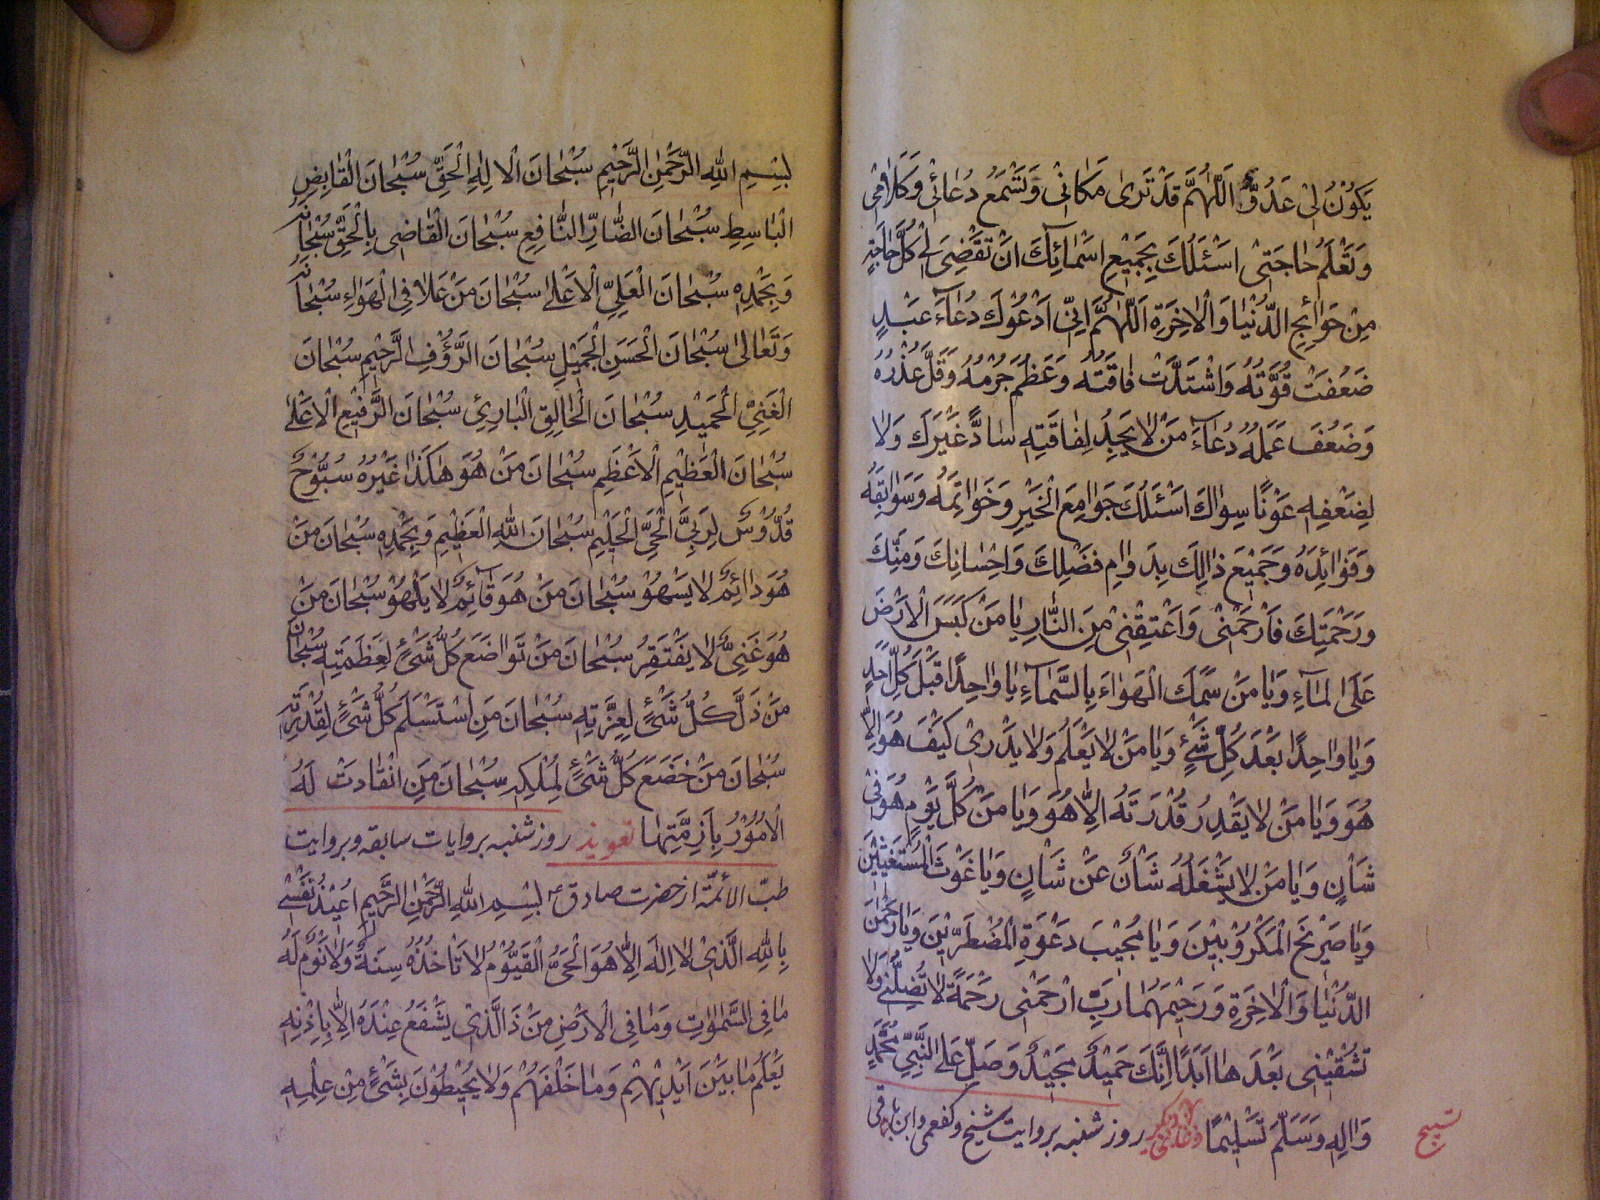 يَكُوْنُ لِيْ عَدُوٌّ اَللّٰهُمَّ قَدْ تَرىٰ مَكانِيْ وَتَسْمَعُ دُعائِيْ وَكَلامِيْ
وَتَعْلَمُ حاجَتِيْ اَسْئَلُكَ بِجَمِيْعِ اَسْمائِكَ اَنْ تَقْضِيَ لِيْ كُلَّ حاجَةٍ
مِنْ حَوائِجِ الدُّنْيا وَالْاٰخِرَةِ اَللّٰهُمَّ اِنِّيْ اَدْعُوْكَ دُعاءَ عَبْدٍ
ضَعُفَتْ قُوَّتُهُ وَاشْتَدَّتْ فاقَتُهُ وَعَظُمَ جُرْمُهُ وَقَلَّ عُذْرُهُ
وَضَعُفَ عَمَلُهُ دُعاءَ مَنْ لا يَجِدُ لِفاقَتِهِ سادًّا غَيْرَكَ وَلا
لِضَعْفِهِ عَوْنًا سِواكَ اَسْئَلُكَ جَوامِعَ الْخَيْرِ وَخَواتِمَهُ وَسَوابِقَهُ
وَفَوائِدَهُ وَجَمِيْعَ ذٰلِكَ بِدَوامِ فَضْلِكَ وَاِحْسانِكَ وَمَنِّكَ
وَرَحْمَتِكَ فَارْحَمْنِيْ وَاَعْتِقْنِيْ مِنَ النّارِ يا مَنْ كَبَسَ الْاَرْضَ
عَلَى الْماءِ وَيا مَنْ سَمَكَ الْهَواءَ بِالسَّماءِ يا واحِدًا قَبْلَ كُلِّ اَحَدٍ
وَيا واحِدًا بَعْدَ كُلِّ شَيْءٍ وَيا مَنْ لا يَعْلَمُ وَلا يَدْرِيْ كَيْفَ هُوَ اِلّا
هُوَ وَيا مَنْ لا يَقْدِرُ قُدْرَتَهُ اِلّا هُوَ وَيا مَنْ كُلَّ يَوْمٍ هُوَ فِيْ
شَاْنٍ وَيا مَنْ لا يَشْغَلُهُ شَاْنٌ عَنْ شَاْنٍ وَيا غَوْثَ الْمُسْتَغِيْثِيْنَ
وَيا صَرِيْخَ الْمَكْرُوْبِيْنَ وَيا مُجِيْبَ دَعْوَةِ الْمُضْطَرِّيْنَ وَيا رَحْمٰنَ
الدُّنْيا وَالْاٰخِرَةِ وَرَحِيْمَهُما رَبِّ ارْحَمْنِيْ رَحْمَةً لا تُضِلُّنِيْ وَلا
تُشْقِيْنِيْ بَعْدَها اَبَدًا اِنَّكَ حَمِيْدٌ مَجِيْدٌ وَصَلِّ عَلَى النَّبِيِّ مُحَمَّدٍ
وَاٰلِهِ وَسَلَّمَ تَسْلِيْمًا روز شنبه بروايت شيخ وكفعمى وابن باقى
تسبيح
بِسْمِ اللهِ الرَّحْمٰنِ الرَّحِيْمِ سُبْحانَ الْاِلٰهِ الْحَقِّ سُبْحانَ الْقابِضِ
الْباسِطِ سُبْحانَ الضّارِّ النّافِعِ سُبْحانَ الْقاضِيْ بِالْحَقِّ سُبْحانَهُ
وَبِحَمْدِهِ سُبْحانَ الْعَلِيِّ الْاَعْلىٰ سُبْحانَ مَنْ عَلا فِي الْهَواءِ سُبْحانَهُ
وَتَعالىٰ سُبْحانَ الْحَسَنِ الْجَمِيْلِ سُبْحانَ الرَّؤُفِ الرَّحِيْمِ سُبْحانَ
الْغَنِيِّ الْحَمِيْدِ سُبْحانَ الْخالِقِ الْبارِئِ سُبْحانَ الرَّفِيْعِ الْاَعْلىٰ
سُبْحانَ الْعَظِيْمِ الْاَعْظَمِ سُبْحانَ مَنْ هُوَ هٰكَذا غَيْرُهُ سُبُّوْحٌ
قُدُّوْسٌ لِرَبِّيَ الْحَيِّ الْحَلِيْمِ سُبْحانَ اللهِ الْعَظِيْمِ وَبِحَمْدِهِ سُبْحانَ مَنْ
هُوَ دائِمٌ لا يَسْهُوْ سُبْحانَ مَنْ هُوَ قائِمٌ لا يَلْهُوْ سُبْحانَ مَنْ
هُوَ غَنِيٌّ لا يَفْتَقِرُ سُبْحانَ مَنْ تَواضَعَ كُلُّ شَيْءٍ لِعَظَمَتِهِ سُبْحانَ
مَنْ ذَلَّ كُلُّ شَيْءٍ لِعِزَّتِهِ سُبْحانَ مَنِ اسْتَسْلَمَ كُلُّ شَيْءٍ لِقُدْرَتِهِ
سُبْحانَ مَنْ خَضَعَ كُلُّ شَيْءٍ لِمُلْكِهِ سُبْحانَ مَنِ انْقادَتْ لَهُ
الْاُمُوْرُ بِاَزِمَّتِها تعويذ روز شنبه بروايات سابقه وبروايت
طبّ الائمّة از حضرت صادق ع بِسْمِ اللهِ الرَّحْمٰنِ الرَّحِيْمِ اُعِيْذُ نَفْسِيْ
بِاللهِ الَّذِيْ لا اِلٰهَ اِلّا هُوَ الْحَيُّ الْقَيُّوْمُ لا تَاْخُذُهُ سِنَةٌ وَلا نَوْمٌ لَهُ
ما فِي السَّمٰوٰتِ وَما فِي الْاَرْضِ مَنْ ذَا الَّذِيْ يَشْفَعُ عِنْدَهُ اِلّا بِاِذْنِهِ
يَعْلَمُ ما بَيْنَ اَيْدِيْهِمْ وَما خَلْفَهُمْ وَلا يُحِيْطُوْنَ بِشَيْءٍ مِنْ عِلْمِهِ